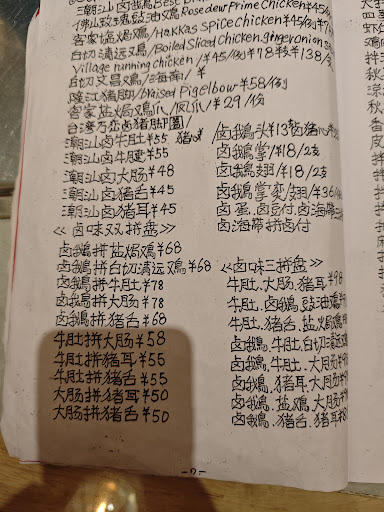 潮汕卤鹅Best Di
佛山玫瑰豉油鸡Rosedew Prime Chicken¥45/
客家塩焗鸡/Hakkas Spice Chicken¥45/例
白切清远鸡/Boiled Sliced Chicken,ginger onion s
Village running chicken/¥45/例¥78枝¥138/
白切文昌鸡/海南/¥
隆江猪脚/braised Pigelbow¥58/例
客家盐焗鸡爪/凤爪/¥29/份
台湾万峦猪脚圈/
潮汕卤牛肚¥55
潮汕卤牛腱¥55
潮汕卤大肠¥48
潮汕卤猪舌¥45
潮汕卤猪耳¥45
卤鹅头¥13
卤鹅掌/¥18/2支
卤鹅翅/¥18/2支
卤鹅掌/翅/¥36/
卤蛋.卤豆付.卤海帶
卤海帶拼卤付
≪卤味双拼盘≫
卤鵝拼盐焗鸡¥68
卤鵝拼白切清远鸡¥68
卤鵝拼牛肚¥78
卤鵝拼大肠¥78
卤鵝拼猪舌¥68
牛肚拼大肠¥58
牛肚拼猪耳¥55
牛肚拼猪舌¥55
大肠拼猪耳¥50
大肠拼猪舌¥50
≪卤味三拼盘≫
牛肚.大肠.猪耳¥98
牛肚.卤鹅.豉油鸡
牛肚.猪舌.盐焗鸡
卤鵝.牛肚.白切清远
卤鵝.牛肚.大肠
卤鵝.猪耳.大肠
卤鵝.盐鸡.大肠
卤鵝.猪舌.猪耳